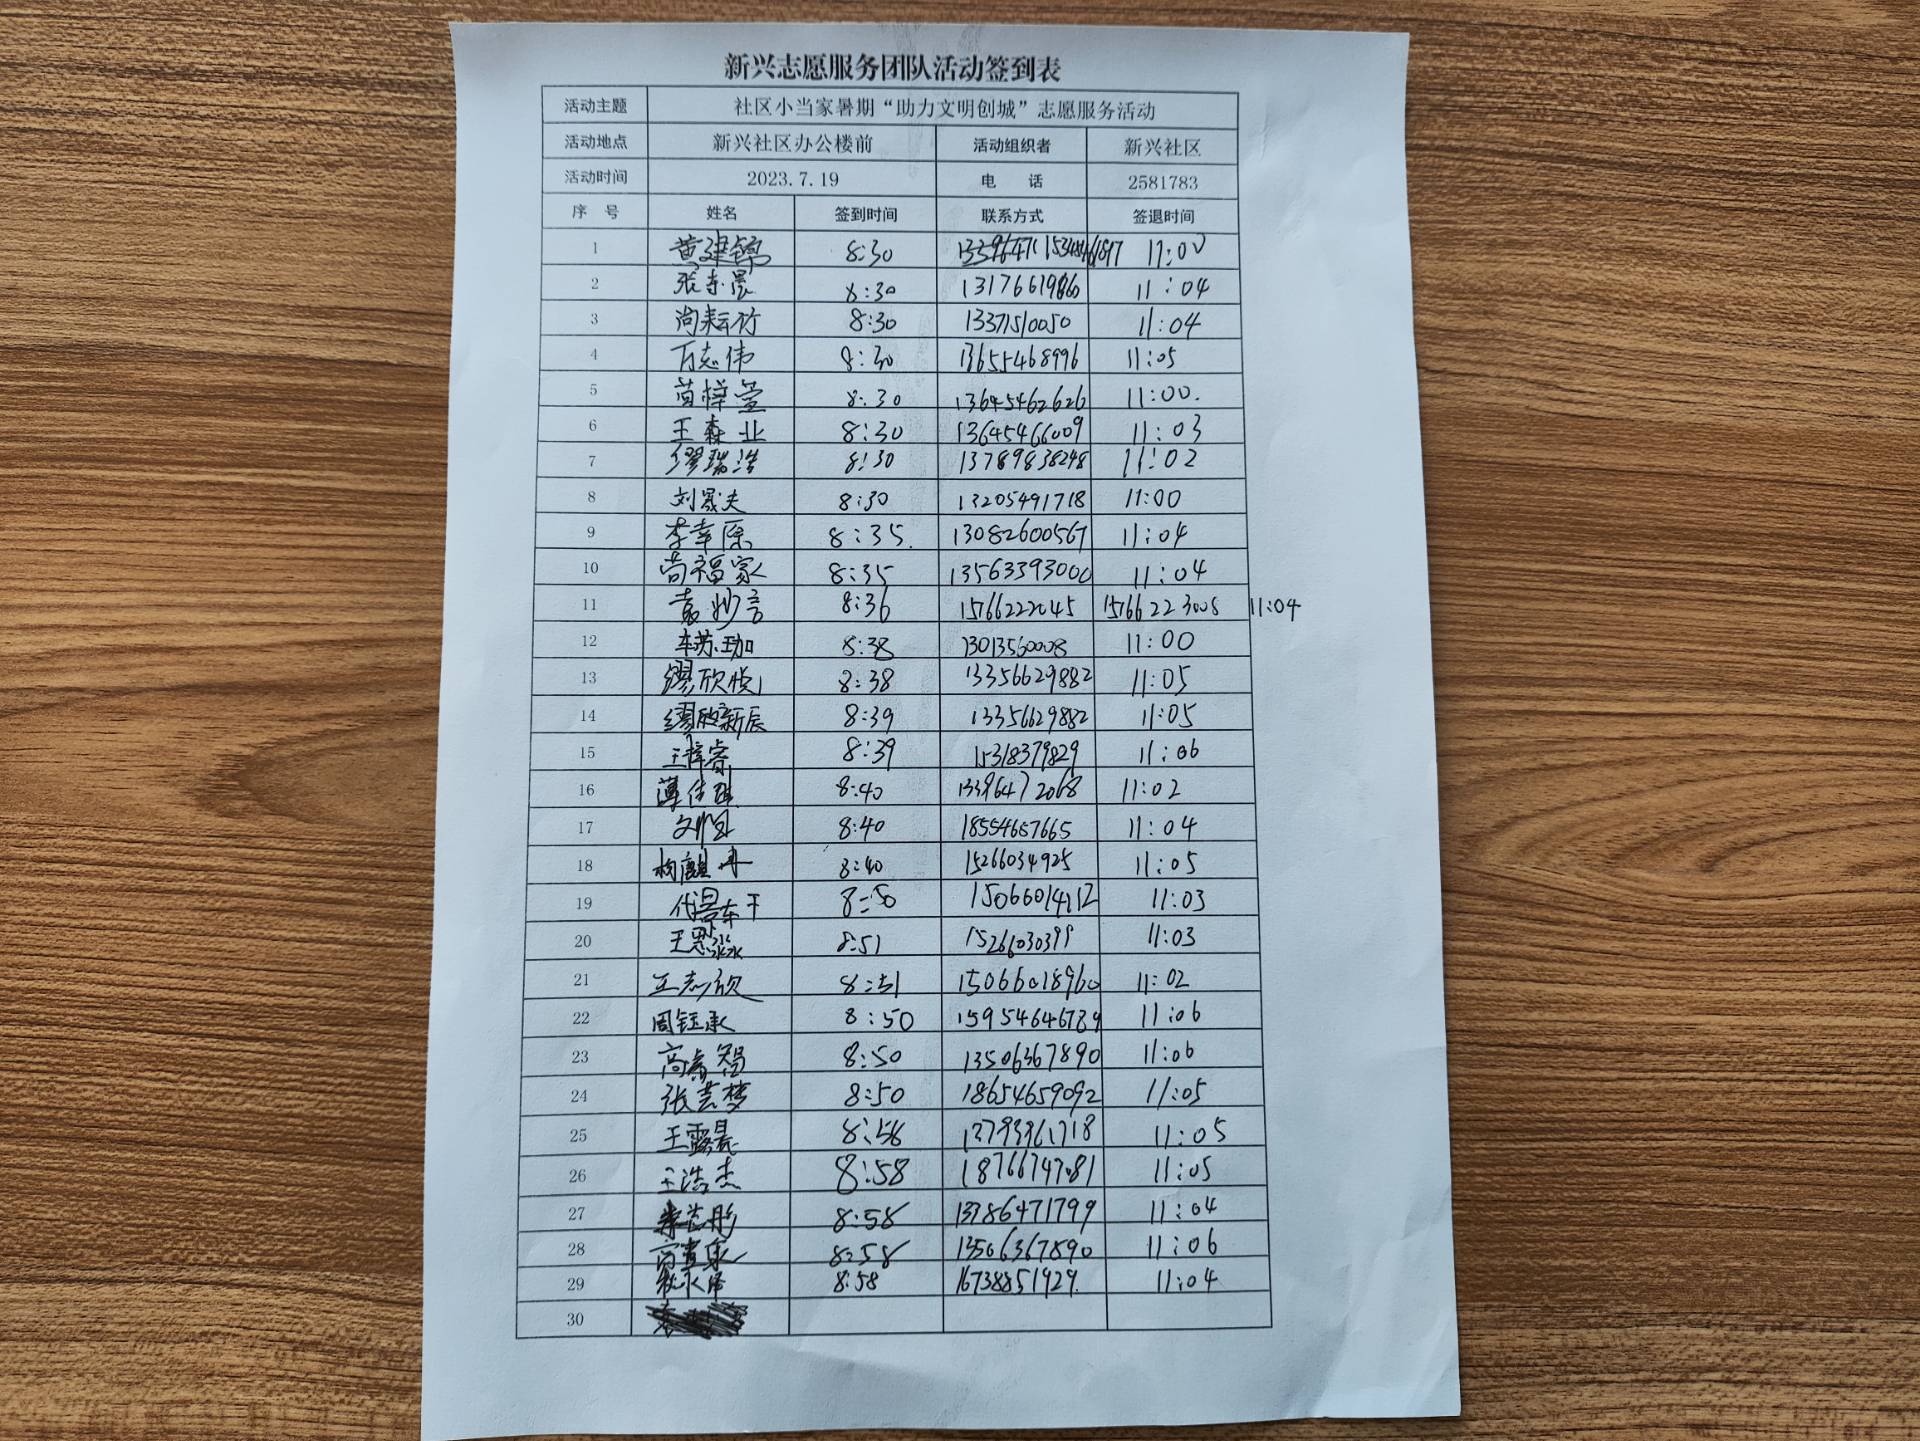 新兴志愿服务团队活动签到表
活动主题 社区小当家暑期“助力文明创城”志愿服务活动
活动地点 新兴社区办公楼前 活动组织者 新兴社区
活动时间 2023.7.19 电 话 2581783
序 号 姓名 签到时间 联系方式 签退时间
1 黄建锦 8:30 11:00
2 张东晨 8:30 13176619860 11:04
3 尚耘竹 8:30 13371510050 11:04
4 万志伟 8:30 13655468996 11:05
5 苗梓萱 8:30 13645462626 11:00.
6 王森业 8:30 13645466009 11:03
7 缪瑞浩 8:30 13789838248 11:02
8 刘晟夫 8:30 13205491718 11:00
9 李幸原 8:35. 13082600567 11:04
10 尚福家 8:35 13563393000 11:04
11 袁妙言 8:36 15766222045 15766223008 11:04
12 车苏珈 8:38 13013560008 11:00
13 缪欣悦 8:38 13356629882 11:05
14 缪 辰 8:39 13356629882 11:05
15 王梓睿 8:39 15318379829 11:06
16 薄佳琪 8:40 13396472068 11:02
17 8:40 18554657665 11:04
18 8:40 15266034925 11:05
19 代 8:50 15066014212 11:03
20 王思淼 8:51 15266030399 11:03
21 王志欣 8:51 15066018960 11:02
22 周钰承 8:50 15954646789 11:06
23 高睿智 8:50 13506367890 11:06
24 张芸梦 8:50 18654659092 11:05
25 王露晨 8:56 13793961718 11:05
26 王浩杰 8:58 18766747081 11:05
27 8:58 13786471799 11:04
28 8:58 13506367890 11:06
29 8:58 16738851929. 11:04
30